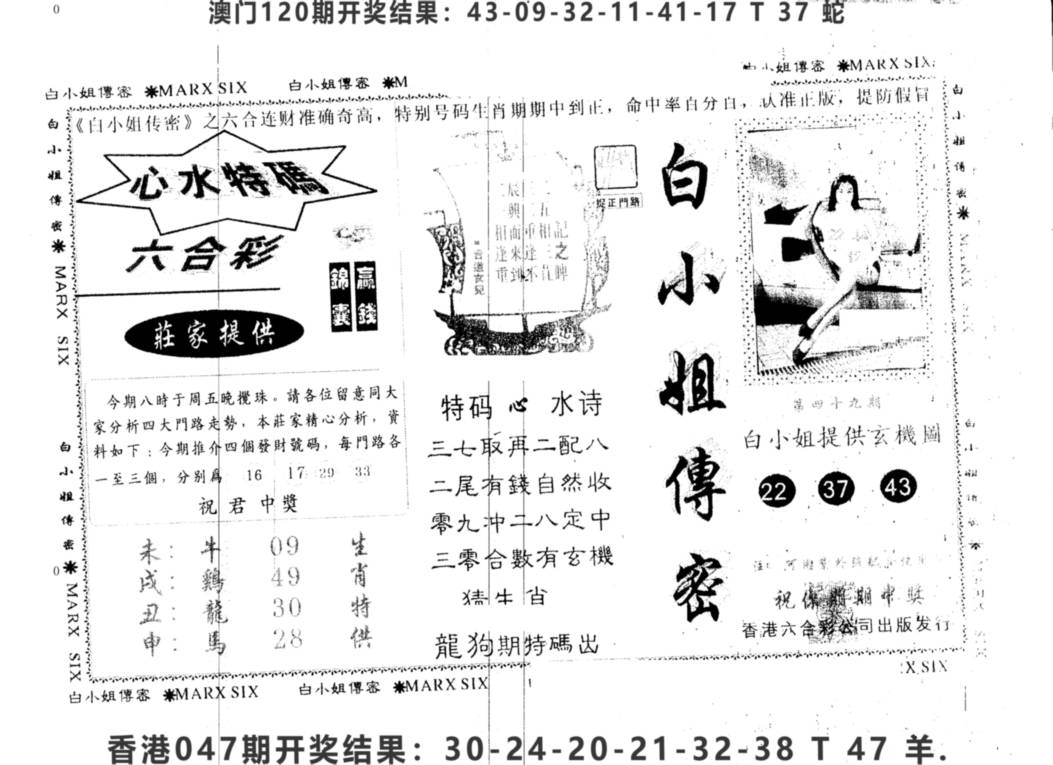 澳门120期开奖结果：43-09-32-11-41-17 T 37 蛇
白小姐傳密 ✷MARX SIX 白小姐傳密 ✷M
白小姐傳密 ✷MARX SIX
《白小姐传密》之六合连财准确奇高，特别号码生肖期期中到正，命中率百分百，认准正版，提防假冒
白小姐傳密✷ MARX SIX
白小姐傳密✷ MARX SIX
心水特碼
六合彩
錦囊
贏錢
莊家提供
今期八時于周五晚攪珠。請各位留意同大
家分析四大門路走勢，本莊家精心分析，資
料如下：今期推介四個發財號碼，每門路各
一至三個，分别爲 16 17 29 33
祝君中獎
未：牛 09 生
戌：鷄 49 肖
丑：龍 30 特
申：馬 28 供
捉正門路
特码心水诗
三七取再二配八
二尾有錢自然收
零九沖二八定中
三零合數有玄機
猜生肖
龍狗期特碼出
白小姐傳密
第四十九期
白小姐提供玄機圖
22 37 43
祝保期期中獎
香港六合彩公司出版发行
白小姐傳密
MARX SIX
白小姐傳密 ✷MARX SIX 白小姐傳密 ✷MARX SIX
X SIX
香港047期开奖结果：30-24-20-21-32-38 T 47 羊.